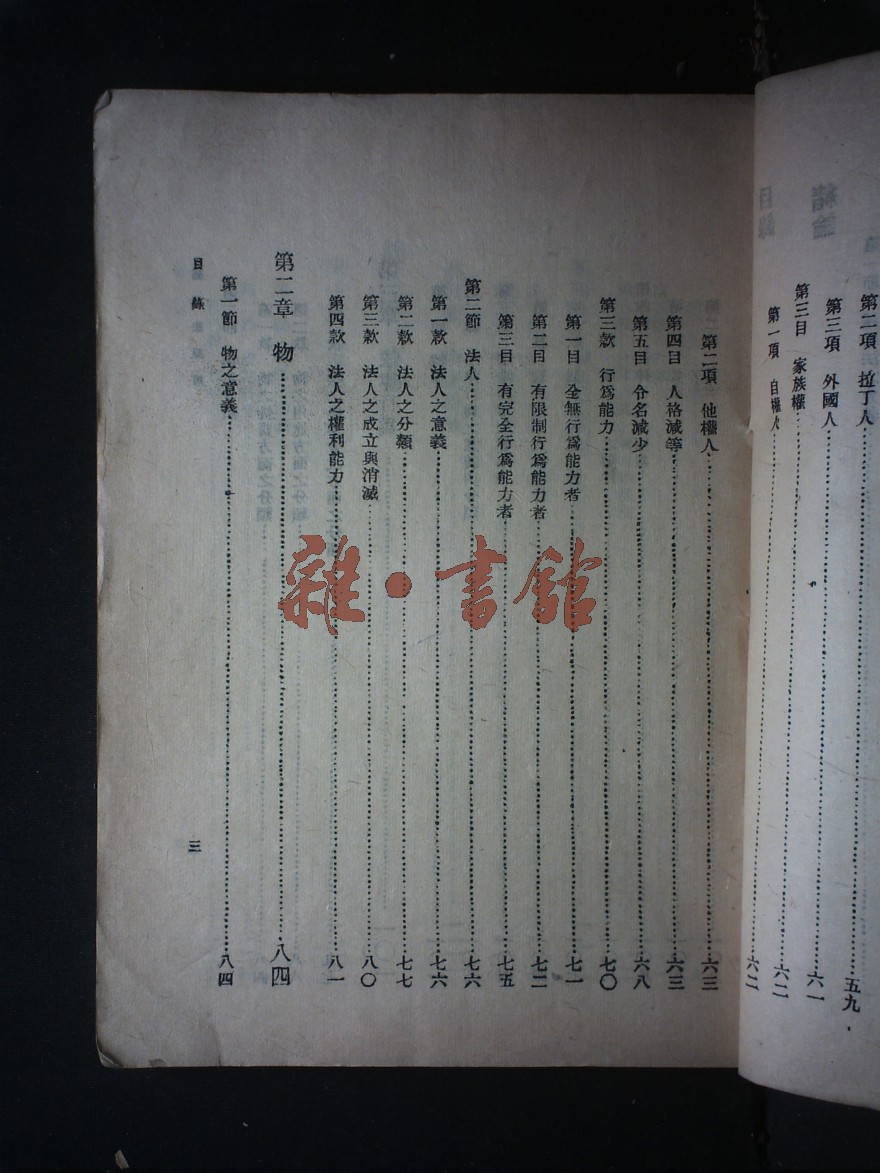 第二項 拉丁人……五九
第三項 外國人……六一
第三目 家族權……六二
第一項 自權人……六二
第二項 他權人……六三
第四目 人格減等……六三
第五目 令名減少……六八
第三款 行爲能力……七〇
第一目 全無行爲能力者……七一
第二目 有限制行爲能力者……七二
第三目 有完全行爲能力者……七五
第二節 法人……七六
第一款 法人之意義……七六
第二款 法人之分類……七七
第三款 法人之成立與消滅……八〇
第四款 法人之權利能力……八一
第二章 物……八四
第一節 物之意義……八四
目錄
三
雜·書館